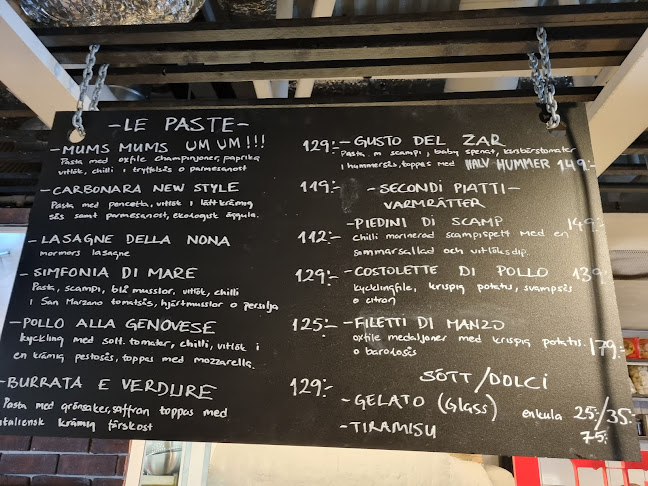 - LE PASTE -
- MUMS MUMS UM UM!!! 129:-
Pasta med oxfile champinjoner, paprika
vitlök, chilli i tryffelsås o parmesanost
- CARBONARA NEW STYLE 119:-
Pasta med pancetta, vitlök i lättkrämig
sås samt parmesanost, ekologisk äggula.
- LASAGNE DELLA NONA 112:-
mormors lasagne
- SIMFONIA DI MARE 129:-
Pasta, scampi, blå musslor, vitlök, chilli
i San Marzano tomatsås, hjärtmusslor o persilja
- POLLO ALLA GENOVESE 125:-
kyckling med solt. tomater, chilli, vitlök i
en krämig pestosås, toppas med mozzarella.
- BURRATA E VERDURE 129:-
Pasta med grönsaker, saffran toppas med
italiensk krämig färskost
- GUSTO DEL ZAR
Pasta m scampi, baby spenat, körsbärstomater
i hummersås, toppas med HALV HUMMER 149:-
- SECONDI PIATTI -
VARMRÄTTER
- PIEDINI DI SCAMP 149:-
chilli marinerad scampispett med en
sommarsallad och vitlöksdip.
- COSTOLETTE DI POLLO 139:-
kycklingfile, krispig potatis, svampsås
o citron
- FILETTI DI MANZO
oxfile medaljoner med krispig potatis. 179:-
o barolosås
SÖTT/DOLCI
- GELATO (Glass) enkula 25:-/35:-
- TIRAMISU 75:-